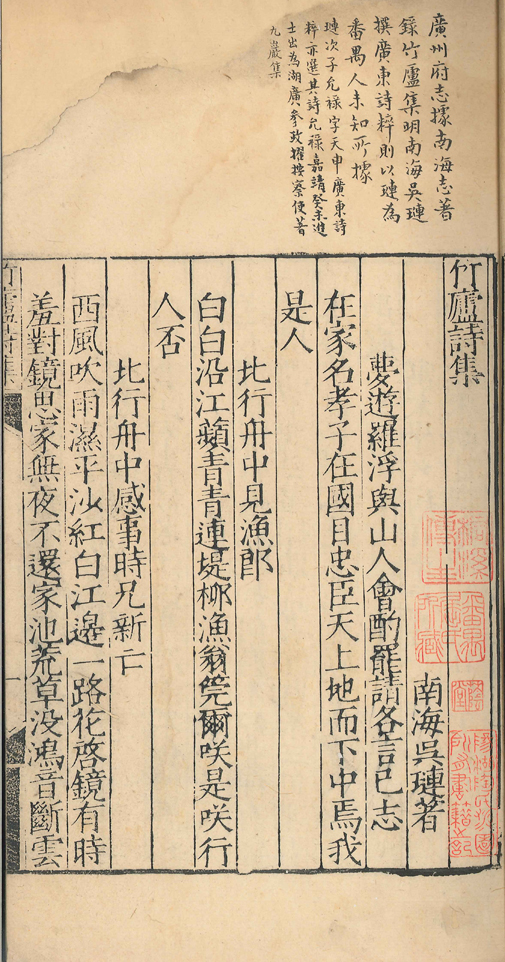 廣州府志據南海志著
錄竹廬集明南海吳璉
撰廣東詩粹則以璉為
番禺人未知所據
璉次子允祿字天申廣東詩
粹亦選其詩允祿嘉靖癸未進
士出為湖廣參政擢按察使著
九巖集
竹廬詩集
南海吳璉著
夢遊羅浮與山人會酌罷請各言己志
在家名孝子在國目忠臣天上地而下中焉我
是人
北行舟中見漁郎
白白沿江蘋青青連堤柳漁翁筦爾咲是咲行
人否
北行舟中感事時兄新亡
西風吹雨濕平沙紅白江邊一路花啓鏡有時
羞對鏡思家無夜不還家池荒草没鴻音斷雲
竹廬詩集
番禺
所藏